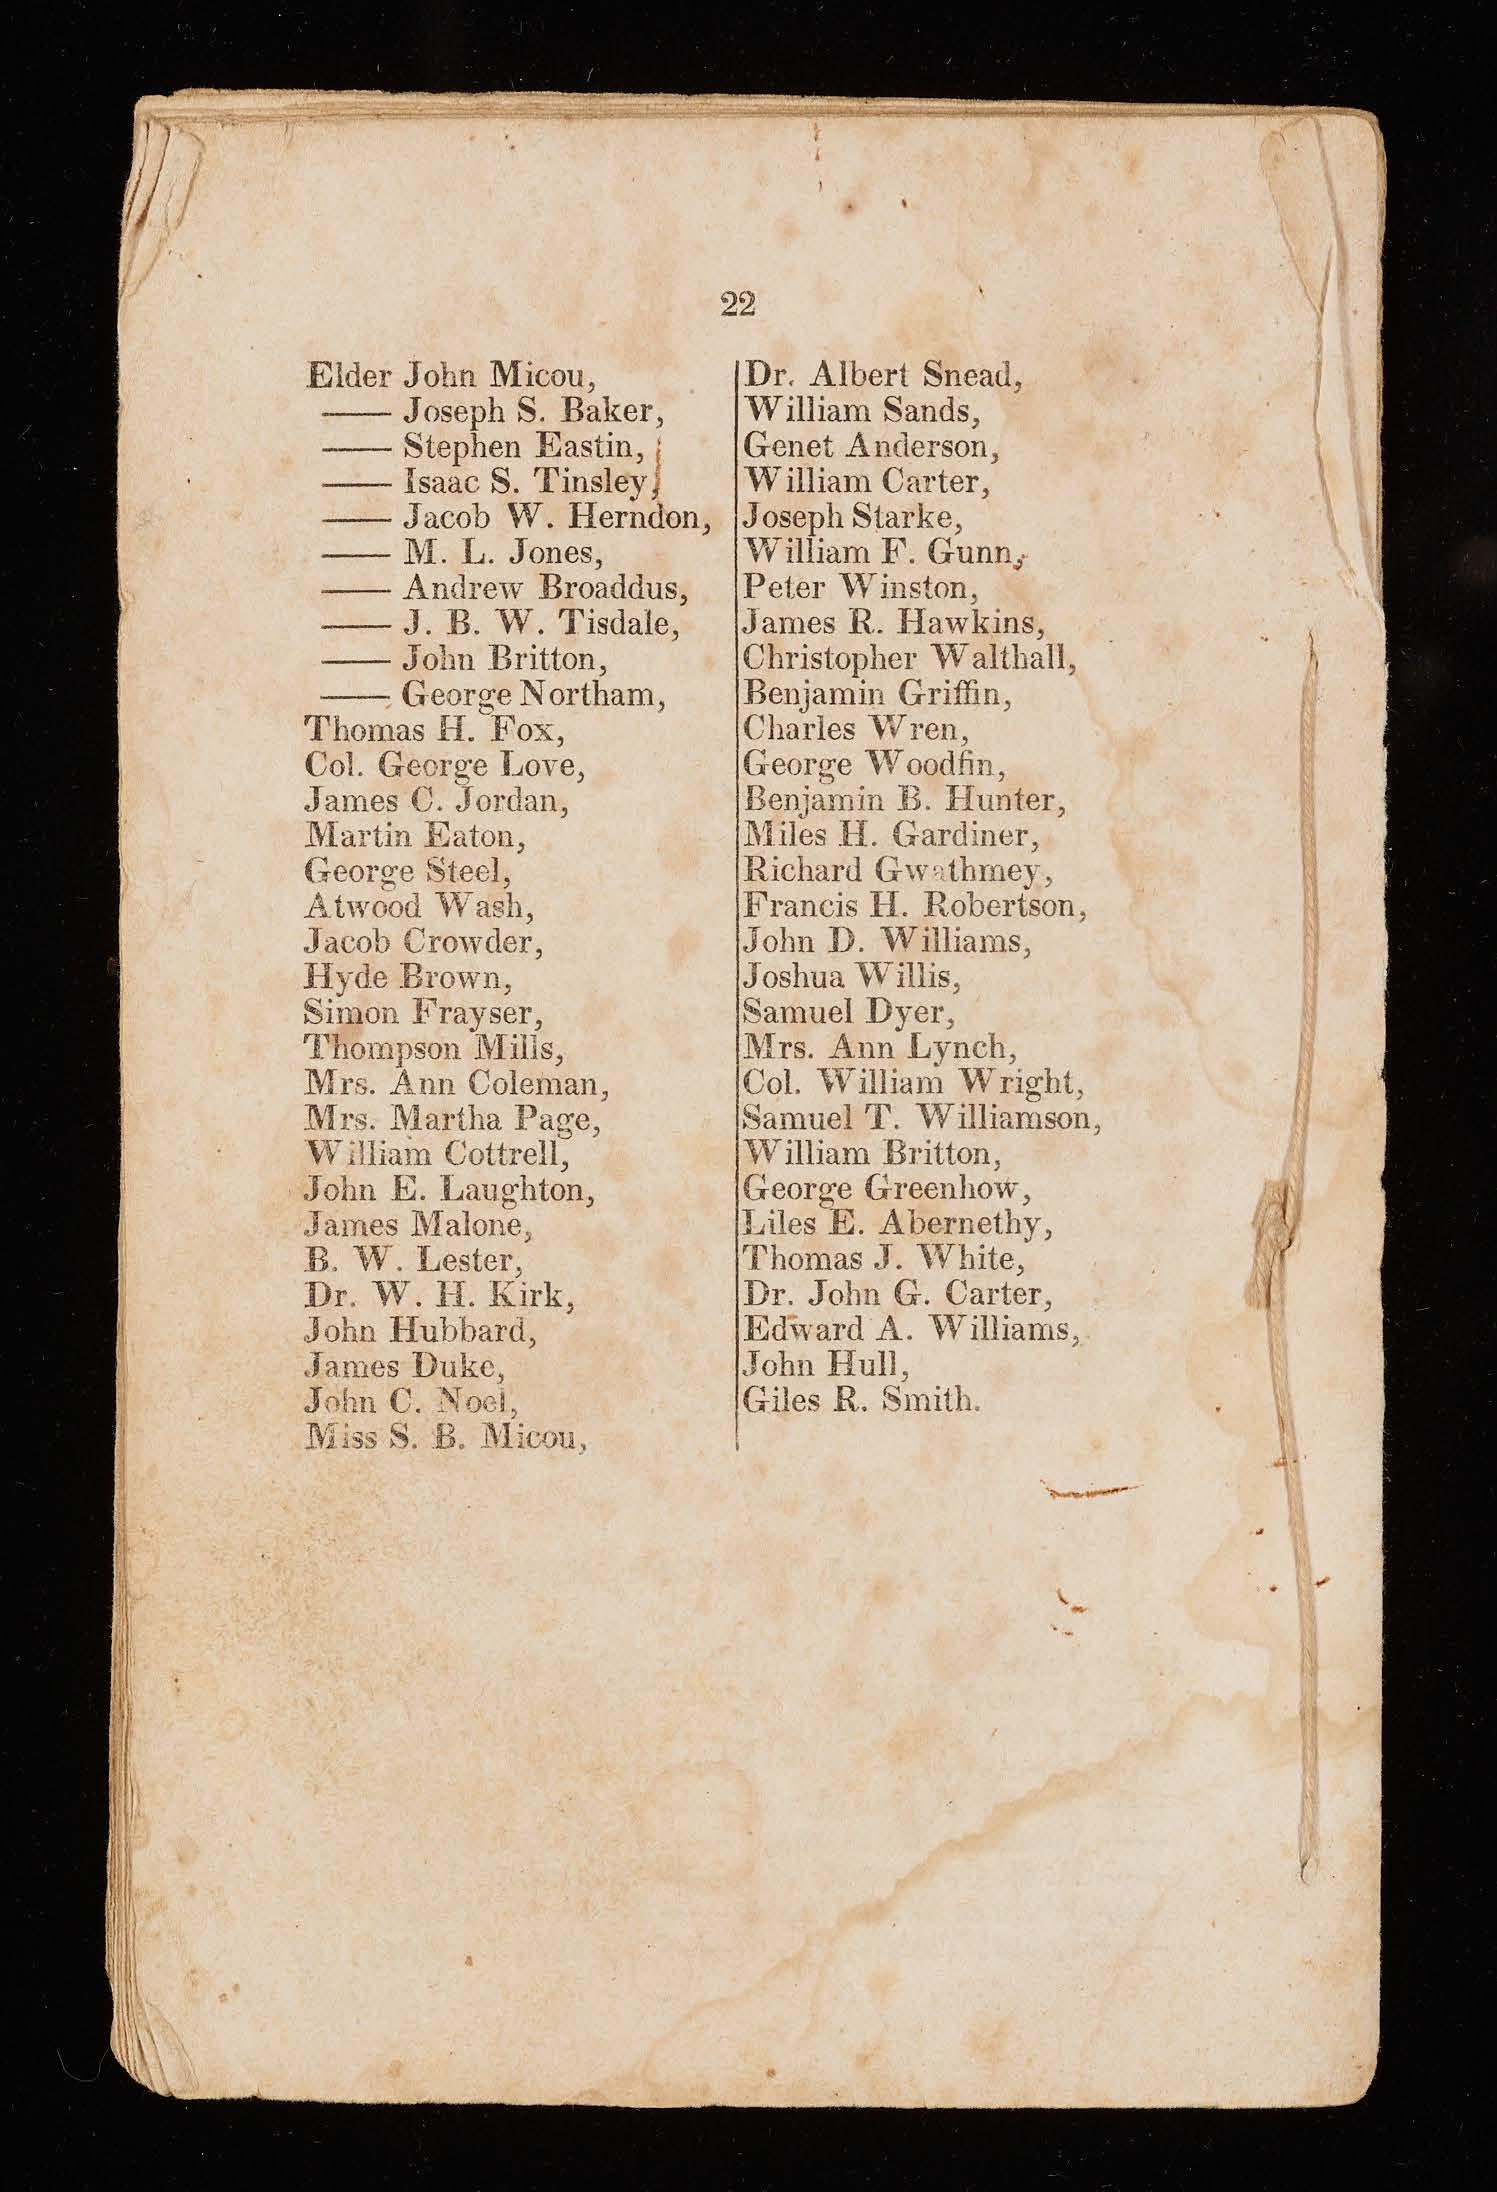 22
Elder John Micou,
—— Joseph S. Baker,
—— Stephen Eastin,
—— Isaac S. Tinsley,
—— Jacob W. Herndon,
—— M. L. Jones,
—— Andrew Broaddus,
—— J. B. W. Tisdale,
—— John Britton,
—— George Northam,
Thomas H. Fox,
Col. George Love,
James C. Jordan,
Martin Eaton,
George Steel,
Atwood Wash,
Jacob Crowder,
Hyde Brown,
Simon Frayser,
Thompson Mills,
Mrs. Ann Coleman,
Mrs. Martha Page,
William Cottrell,
John E. Laughton,
James Malone,
B. W. Lester,
Dr. W. H. Kirk,
John Hubbard,
James Duke,
John C. Noel,
Miss S. B. Micou,
Dr. Albert Snead,
William Sands,
Genet Anderson,
William Carter,
Joseph Starke,
William F. Gunn,
Peter Winston,
James R. Hawkins,
Christopher Walthall,
Benjamin Griffin,
Charles Wren,
George Woodfin,
Benjamin B. Hunter,
Miles H. Gardiner,
Richard Gwathmey,
Francis H. Robertson,
John D. Williams,
Joshua Willis,
Samuel Dyer,
Mrs. Ann Lynch,
Col. William Wright,
Samuel T. Williamson,
William Britton,
George Greenhow,
Liles E. Abernethy,
Thomas J. White,
Dr. John G. Carter,
Edward A. Williams,
John Hull,
Giles R. Smith.